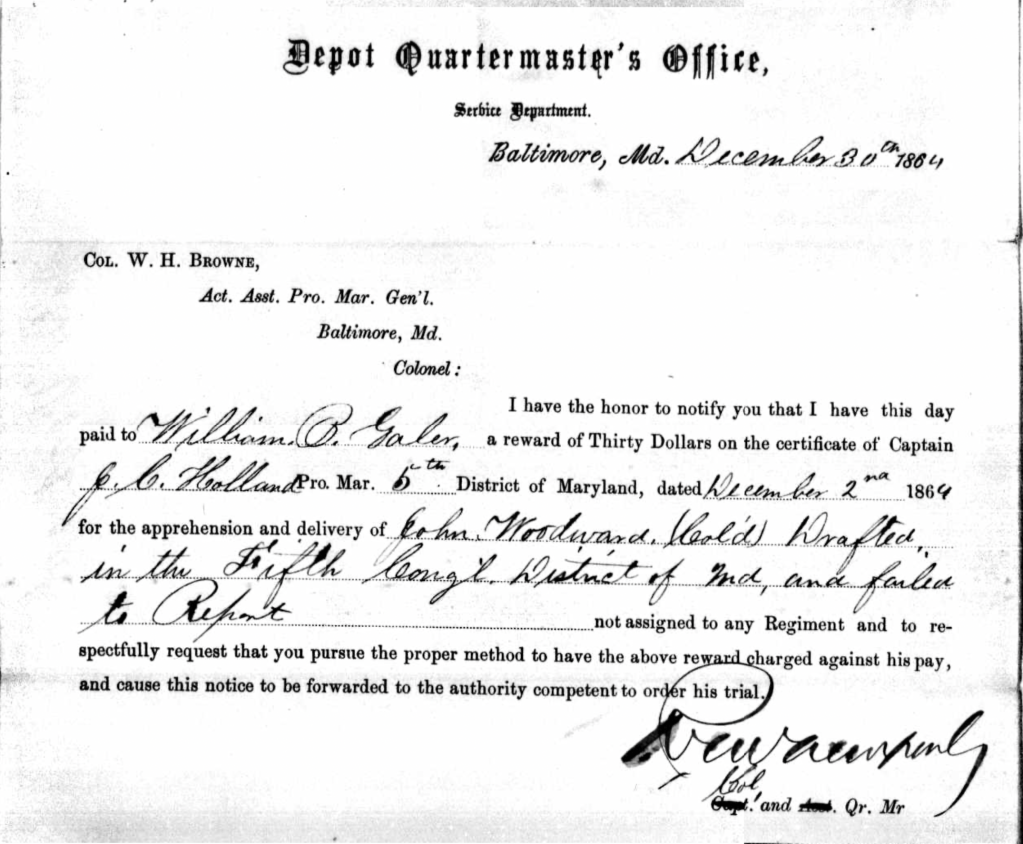 Depot Quartermaster's Office,
Service Department.
Baltimore, Md. December 30th 1864
COL. W. H. BROWNE,
Act. Asst. Pro. Mar. Gen'l.
Baltimore, Md.
Colonel:
I have the honor to notify you that I have this day
paid to William. P. Galer, a reward of Thirty Dollars on the certificate of Captain
J. C. Holland Pro. Mar. 5th. District of Maryland, dated December 2nd 1864
for the apprehension and delivery of John. Woodward. (Col'd) Drafted,
in the Fifth Cong'l. District of Md, and failed
to Report not assigned to any Regiment and to re-
spectfully request that you pursue the proper method to have the above reward charged against his pay,
and cause this notice to be forwarded to the authority competent to order his trial.
Col
Capt. and Asst. Qr. Mr